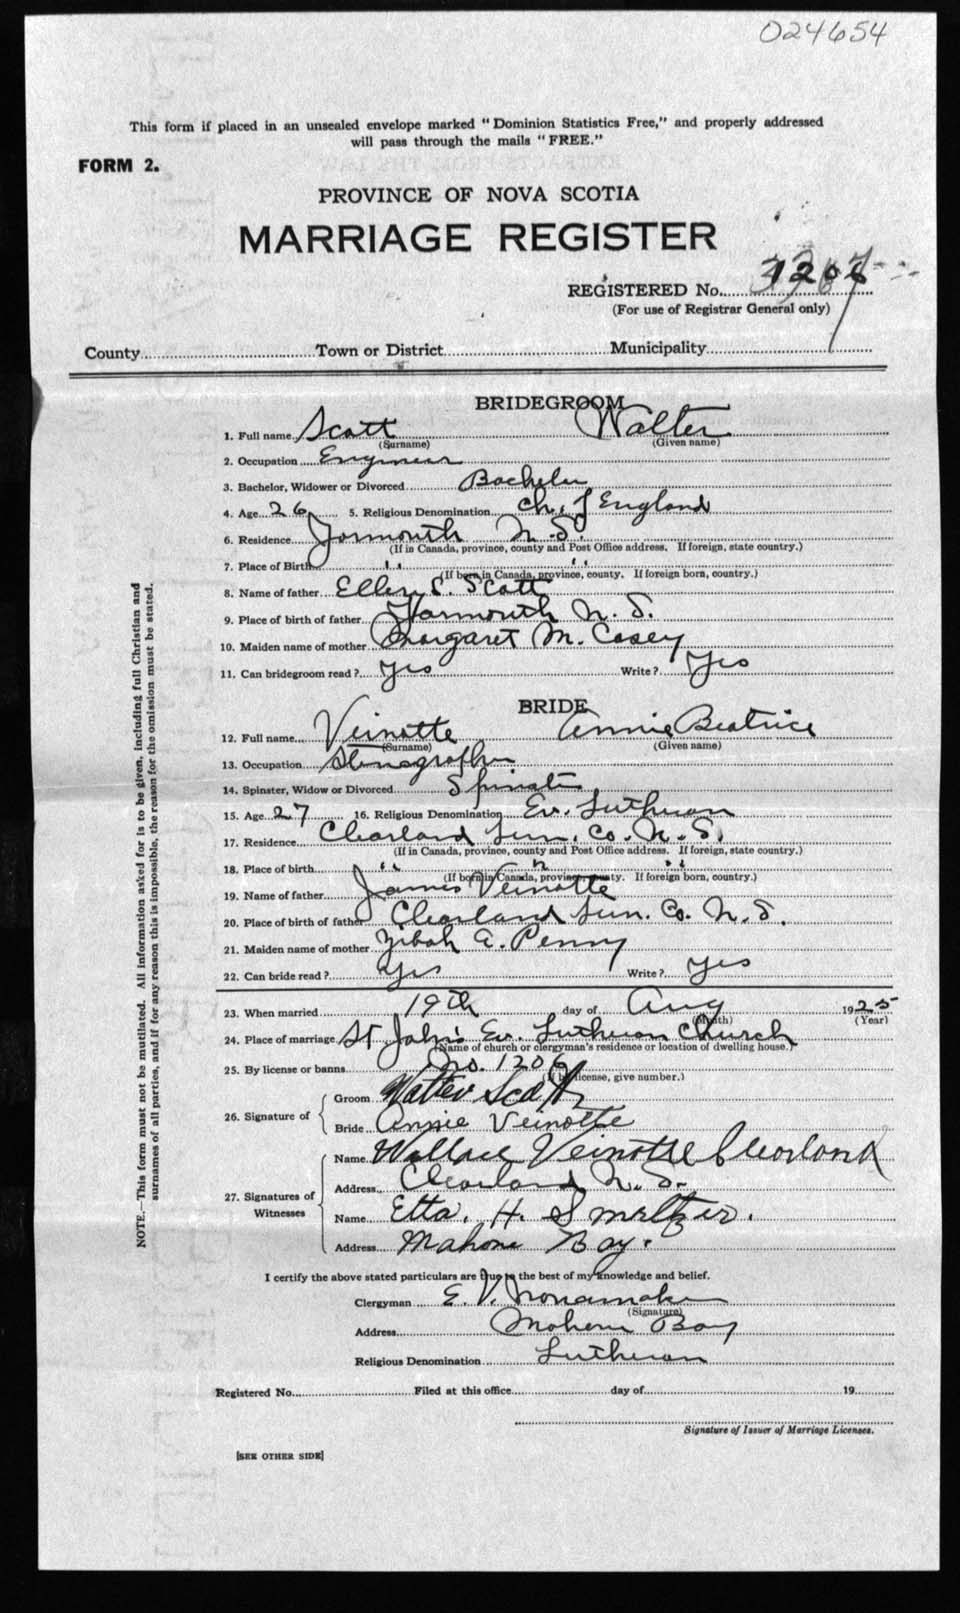 024654
This form if placed in an unsealed envelope marked "Dominion Statistics Free," and properly addressed
will pass through the mails "FREE."
FORM 2.
PROVINCE OF NOVA SCOTIA
MARRIAGE REGISTER
REGISTERED No. 1206
(For use of Registrar General only)
County Town or District Municipality
BRIDEGROOM
1. Full name Scott Walter
(Surname) (Given name)
2. Occupation Engineer
3. Bachelor, Widower or Divorced Bachelor
4. Age 26 5. Religious Denomination Ch. of England
6. Residence Yarmouth N.S.
(If in Canada, province, county and Post Office address. If foreign, state country.)
7. Place of Birth " "
(If born in Canada, province, county. If foreign born, country.)
8. Name of father Ellery S. Scott
9. Place of birth of father Yarmouth N. S.
10. Maiden name of mother Margaret M. Casey
11. Can bridegroom read? Yes Write? Yes
BRIDE
12. Full name Veinotte Annie Beatrice
(Surname) (Given name)
13. Occupation Stenographer
14. Spinster, Widow or Divorced Spinster
15. Age 27 16. Religious Denomination Ev. Lutheran
17. Residence Clearland Lun. Co. N. S.
(If in Canada, province, county and Post Office address. If foreign, state country.)
18. Place of birth " " "
(If born in Canada, province, county. If foreign born, country.)
19. Name of father James Veinotte
20. Place of birth of father Clearland Lun. Co. N. S.
21. Maiden name of mother Zibah A. Penny
22. Can bride read? Yes Write? Yes
23. When married 19th day of Aug 1925
(Month) (Year)
24. Place of marriage St John's Ev. Lutheran Church
(Name of church or clergyman's residence or location of dwelling house.)
25. By license or banns No. 1206
(If by license, give number.)
26. Signature of Groom Walter Scott
Bride Annie Veinotte
27. Signatures of Witnesses Name Wallace Veinotte Clearland
Address Clearland N. S.
Name Etta. H. Smeltzer.
Address Mahone Bay.
I certify the above stated particulars are true to the best of my knowledge and belief.
Clergyman E. V. Nonamaker
(Signature)
Address Mahone Bay
Religious Denomination Lutheran
Registered No. Filed at this office day of 19
Signature of Issuer of Marriage Licenses.
[SEE OTHER SIDE]
NOTE.—This form must not be mutilated. All information asked for is to be given, including full Christian and
surnames of all parties, and if for any reason this is impossible, the reason for the omission must be stated.